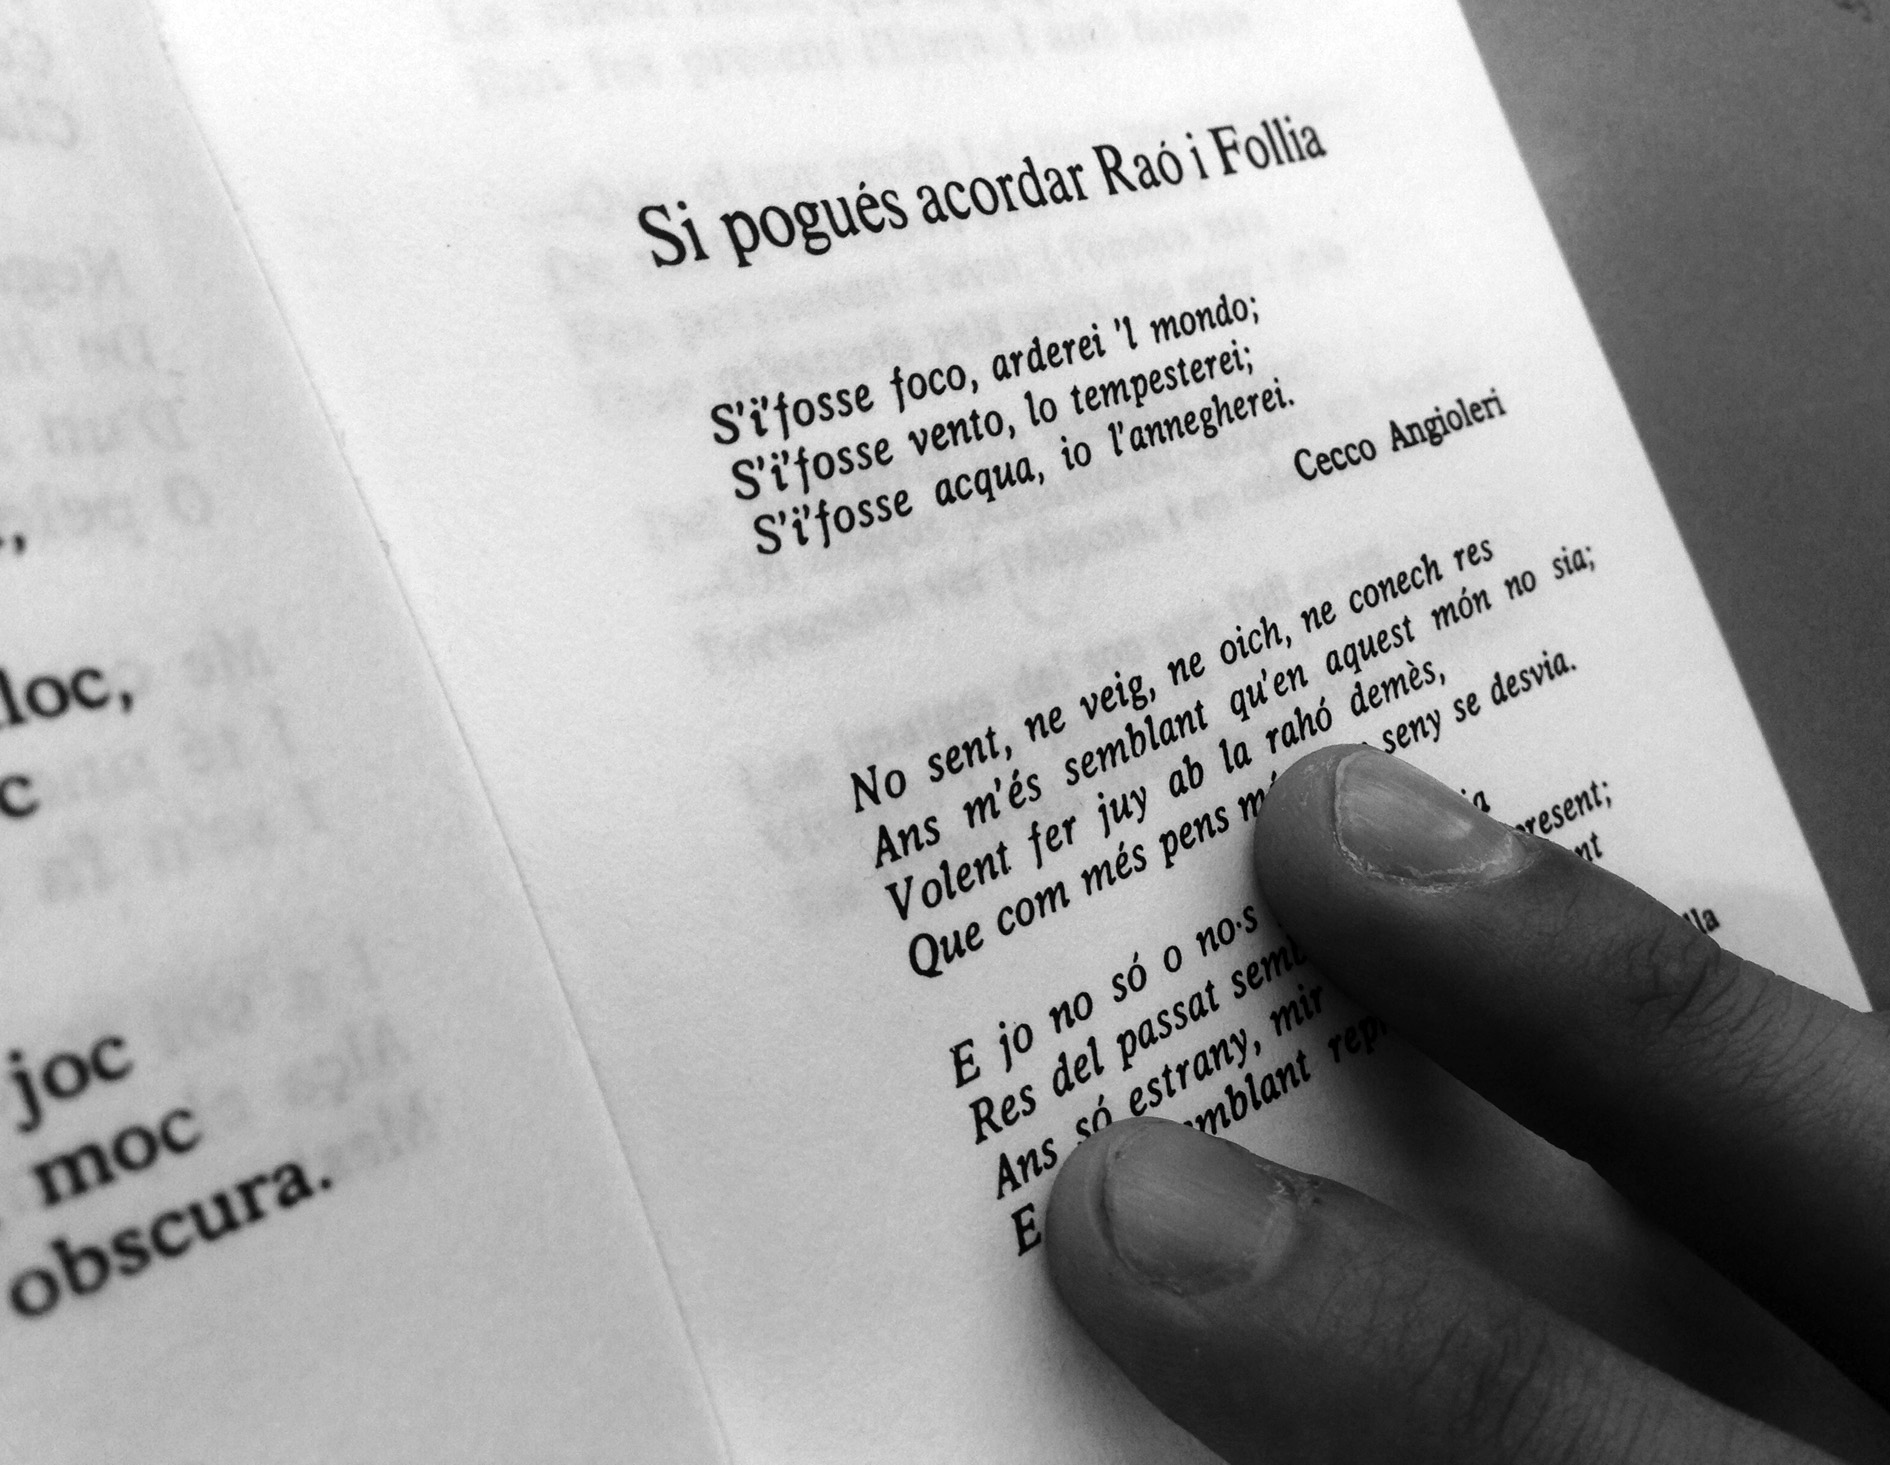 loc,
c
joc
moc
obscura.
Si pogués acordar Raó i Follia
S'i'fosse foco, arderei 'l mondo;
S'i'fosse vento, lo tempesterei;
S'i'fosse acqua, io l'annegherei.
Cecco Angioleri
No sent, ne veig, ne oich, ne conech res
Ans m'és semblant qu'en aquest món no sia;
Volent fer juy ab la rahó demès,
Que com més pens seny se desvia.
E jo no só o no·s
Res del passat present;
Ans só estrany, mir
E